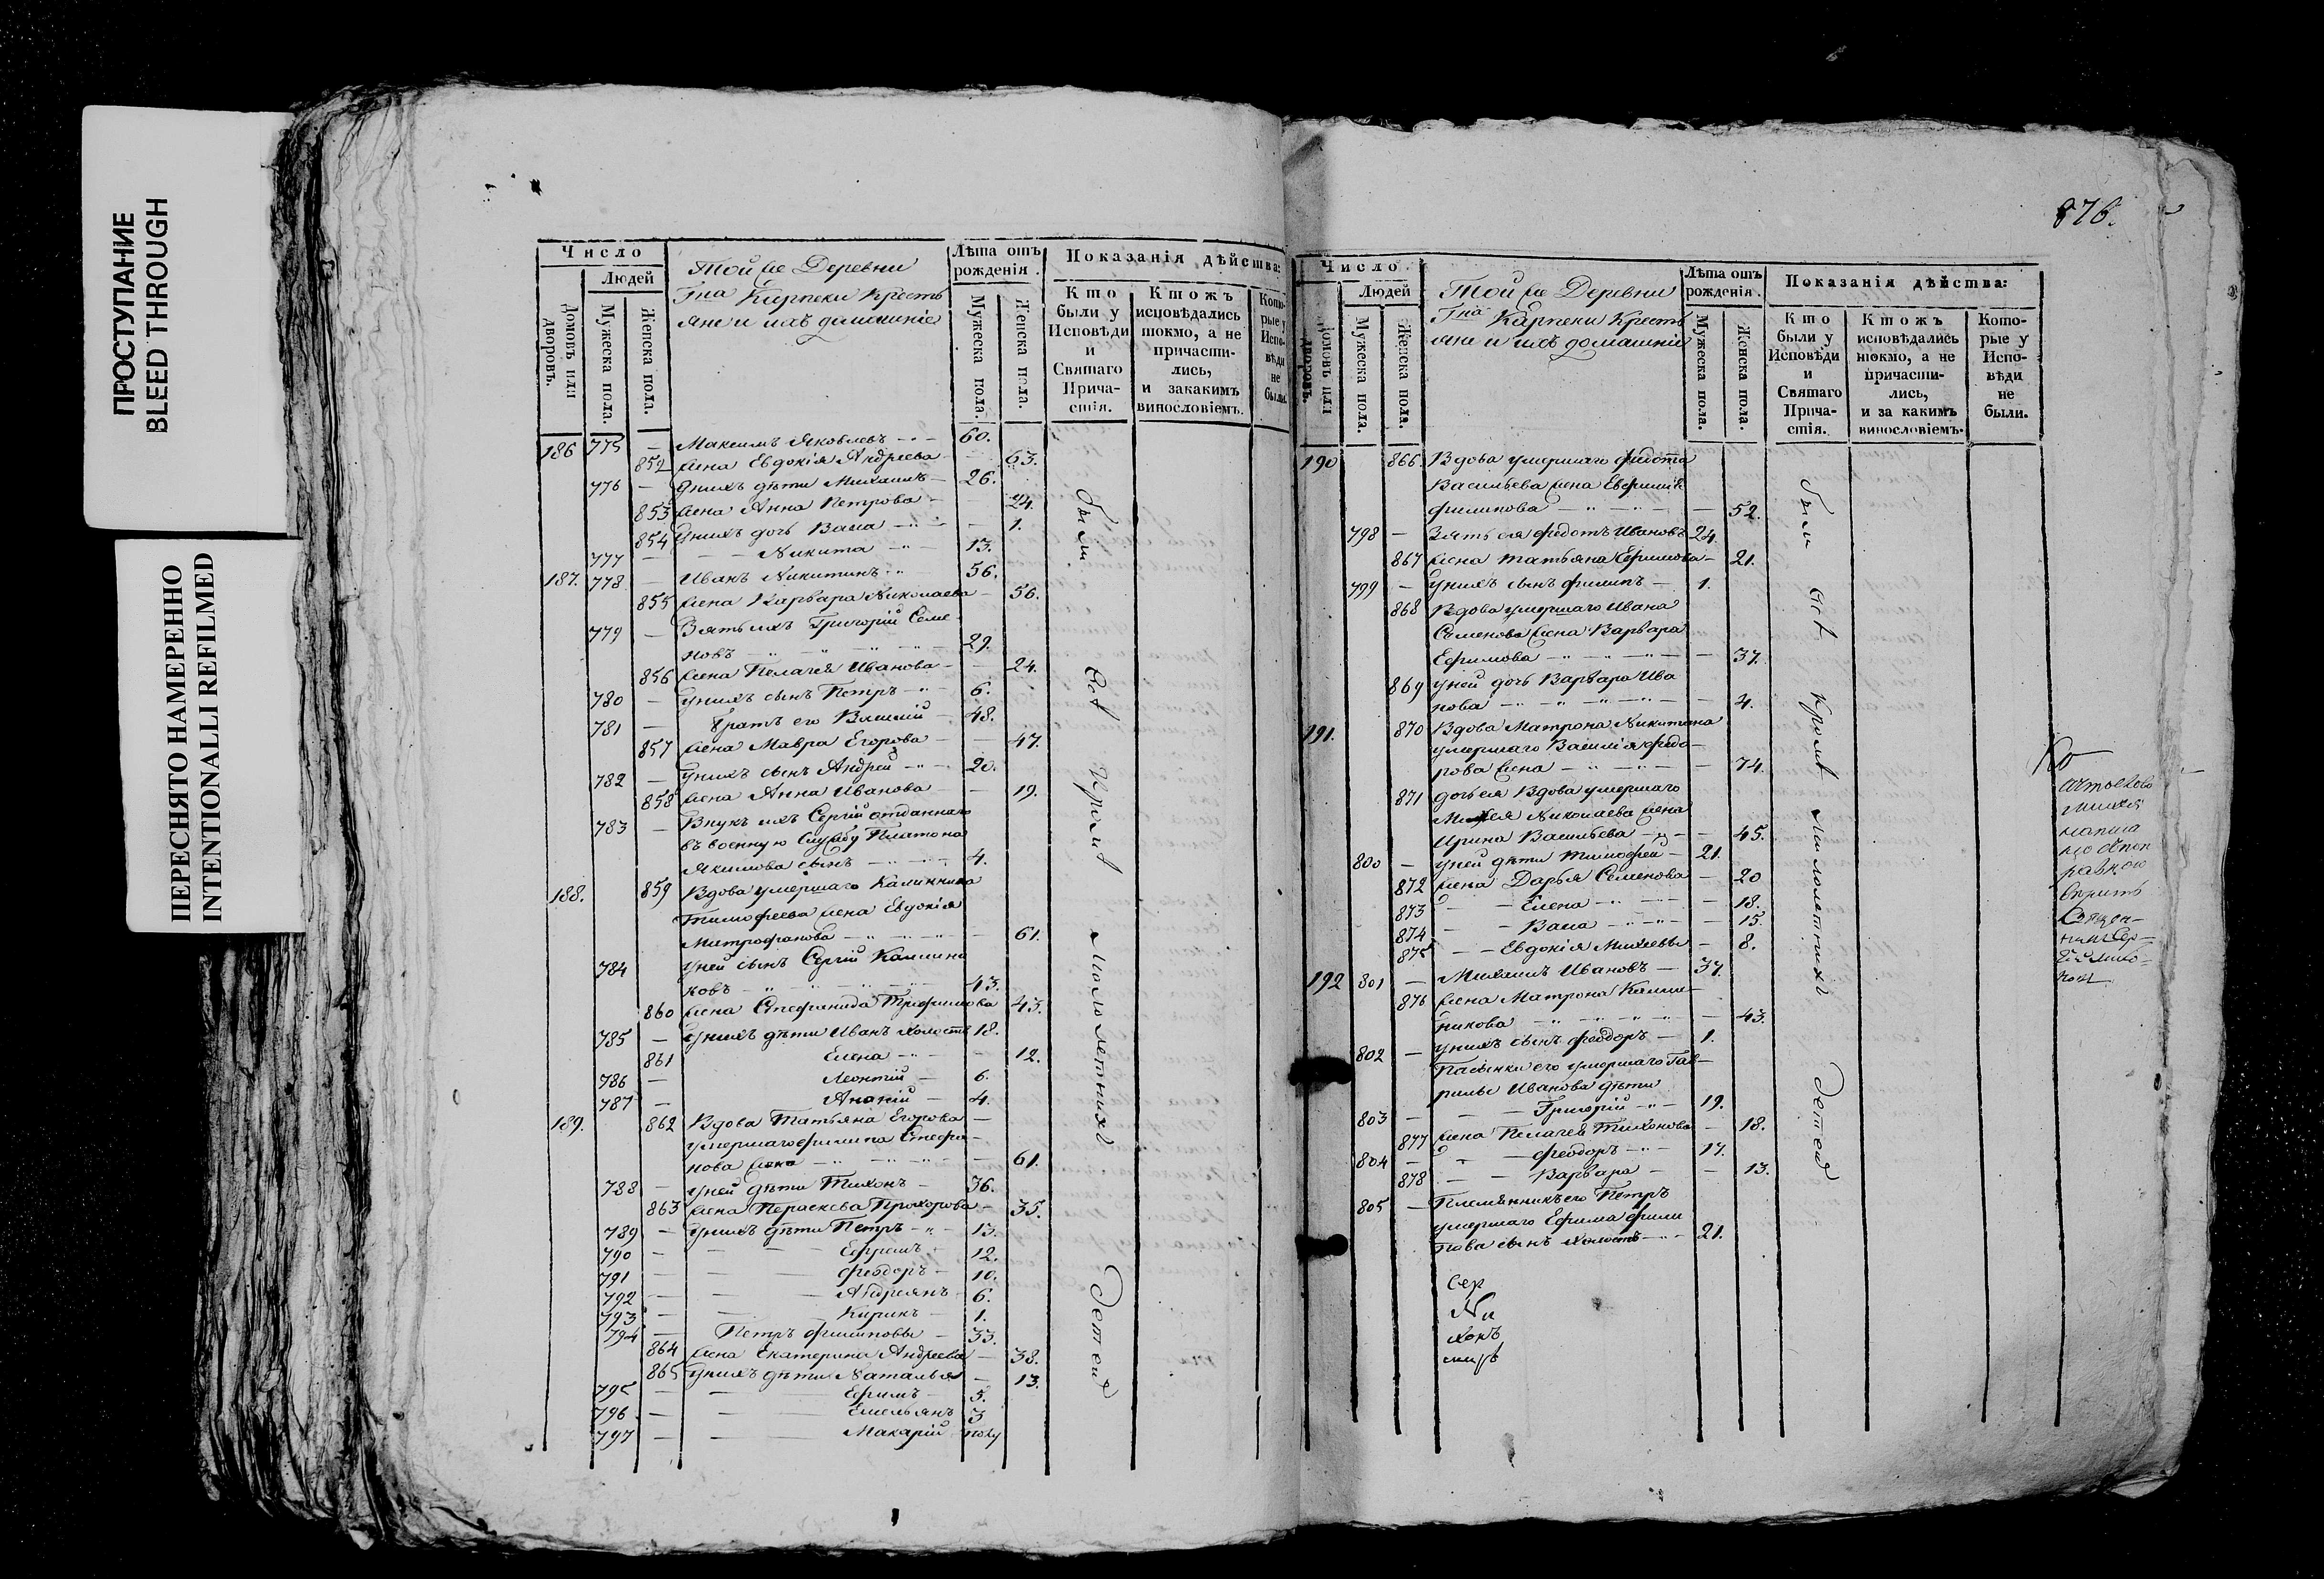 ПРОСТУПАНИЕ
BLEED THROUGH
ПЕРЕСНЯТО НАМЕРЕННО
INTENTIONALLI REFILMED
Число
Людей
Домовъ или дворовъ.
Мужеска пола.
Женска пола.
Той же Деревни
Гна Карпеки Кресть
яне и ихъ домашніе
Лѣта отъ рожденія.
Мужеска пола.
Женска пола.
Показанія дѣйства:
Кто были у Исповѣди и Святаго Прича-стія.
Ктожъ исповѣдались токмо, а не причасти-лись, и закакимъ винословіемъ.
Кото-рые у Испо-вѣди не были.
186 775 — Максимъ Яковлевъ 60.
852 жена Евдокія Андреева 63.
776 — Уних дѣти Михаилъ 26.
853 жена Анна Петрова 24.
854 Унихъ дочь Васа — 1.
777 — Никита 13.
187. 778 — Иванъ Никитинъ 56.
855 жена Варвара Николаева 56.
779 — Зять ихъ Григорій Семе
новъ 29.
856 жена Пелагея Иванова 24.
780 — Унихъ сынъ Петръ 6.
781 — братъ его Василій 48.
857 жена Мавра Егорова 47.
782 — Унихъ сынъ Андрей 20.
858 жена Анна Иванова — 19.
783 — Внукъ ихъ Сергій отданнаго
въ военную службу Платона
Якимова сынъ 4.
188. 859 Вдова умершаго Калинника
Тимофеева жена Евдокія
Митрофанова 61.
784 Уней сынъ Сергій Калинни
ковъ 43.
860 жена Стефанида Трофимова 43.
785 — Унихъ дѣти Иванъ холостъ 18.
861 Елена — 12.
786 — Леонтій — 6.
787 — Ананій — 4.
189. 862 Вдова Татьяна Егорова —
умершаго филипа Стефа-
нова жена 61.
788 — Уней дѣти Тихонъ — 36.
863 жена Пераскева Прохорова 35.
789 — Унихъ дѣти Петръ 13.
790 — Ефремъ 12.
791 — феодоръ 10.
792 — Андреянъ 6.
793 — Кирикъ 1.
794 — Петръ филиповы — 33.
864 жена Екатерина Андреева — 38.
865 Унихъ дѣти Наталья — 13.
795 — Ефимъ 5.
796 — Емельянъ 3
797 — Макарій полу
были всѣ кромѣ малолетнихъ детей
876.
Число
Людей
Домовъ или дворовъ.
Мужеска пола.
Женска пола.
Той же Деревни
Гна Карпеки Кресть
яне и ихъ домашніе
Лѣта отъ рожденія.
Мужеска пола.
Женска пола.
Показанія дѣйства:
Кто были у Исповѣди и Святаго Прича-стія.
Ктожъ исповѣдались токмо, а не причасти-лись, и за какимъ винословіемъ.
Кото-рые у Испо-вѣди не были.
190 866. Вдова умершаго федота
Васильева жена
филипова — 52.
798 — Зять ея федотъ Ивановъ 24
867 жена татьяна Ефимова — 21.
799 — Унихъ сынъ филипъ — 1.
868 Вдова умершаго Ивана
Семенова жена Варвара
Ефимова — 37.
869 Уней дочь Варвара Ива
нова — 4.
191. 870 Вдова Матрона Никитина
умершаго Василія федо-
рова жена — 74.
871 дочь ея Вдова умершаго
Михея Николаева жена
Ирина Васильева — 45.
800 — Уней дѣти Тимофей — 21.
872 жена Дарья Семенова — 20
873 — Елена — 18.
874 — Васа — 15.
875 — Евдокія Михеевы — 8.
192 801 — Михаилъ Ивановъ — 37.
876 жена Матрона Калин-
никова — 43.
802 — Унихъ сынъ феодоръ — 1.
Пасынки его умершаго Гав-
рилы Иванова дѣти
803 — Григорій — 19.
877 жена Пелагея Тихонова — 18.
804 — феодоръ — 17.
878 — Варвара — 13.
805 — Племянникъ его Петръ
умершаго Ефима фили
пова сынъ холостъ — 21.
были всѣ кромѣ малолетнихъ детей
Сер
Ни